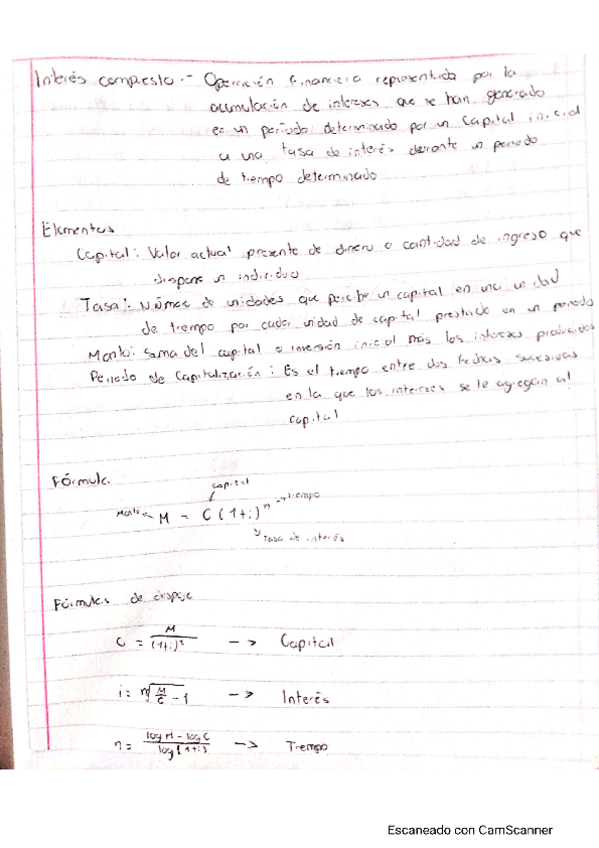 Interés compuesto.- Operación financiera representada por la
acumulación de intereses que se han generado
en un periodo determinado por un Capital inicial
a una tasa de interés durante un periodo
de tiempo determinado
Elementos
Capital: Valor actual presente de dinero o cantidad de ingreso que
dispone un individuo
Tasa:- Número de unidades que percibe un capital en una unidad
de tiempo por cada unidad de capital prestado en un periodo
Monto: Suma del capital o inversión inicial más los intereses producidos
Periodo de Capitalización: Es el tiempo entre dos fechas sucesivas
en la que los intereses se le agregan al
capital
Fórmula
capital
Monto M = C(1+i)^n → tiempo
Tasa de interés
Fórmulas de despeje
C = M/(1+i)^n --> Capital
i = n√(M/C) -1 --> Interés
n = (log M - log C)/(log(1+i)) --> Tiempo
Escaneado con CamScanner